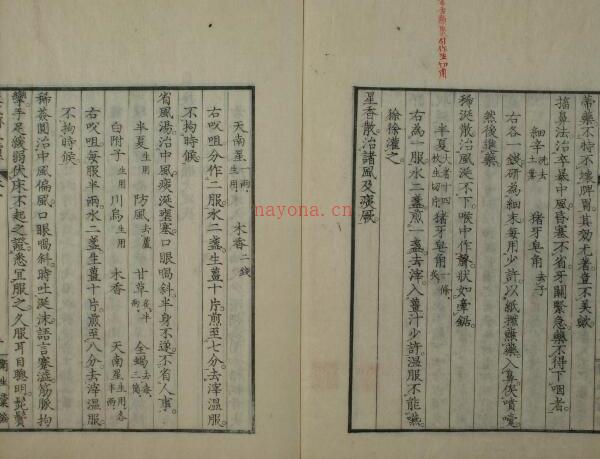 蒂藥不特不壞脾胃其効尤著豈不美歟
搐鼻法治卒暴中風昏塞不省牙關緊急藥不得下咽者
細辛洗去土葉
猪牙皂角去子
右各一錢研為細末每用少許以紙撚蘸藥入鼻俟噴嚏
然後進藥
稀涎散治風涎不下喉中作聲狀如牽鋸
半夏大者十四枚生切片
猪牙皂角一條炙
右為一服水二盞煎一盞去滓入薑汁少許溫服不能嚥
徐徐灌之
星香散治諸風及痰厥
天南星一兩生用
木香二錢
右㕮咀分作二服水二盞生薑十片煎至七分去滓溫服
不拘時候
省風湯治中風痰涎壅塞口眼喎斜半身不遂不省人事
半夏生用
防風去蘆
甘草
全蝎去毒三箇
白附子生用
川烏生用
木香
天南星生用各半兩
右㕮咀每服半兩水二盞生薑十片煎至八分去滓溫服
不拘時候
稀薟圓治中風偏風口眼喎斜時吐涎沫語言蹇澁筋脈拘
攣手足緩弱伏床不起之證悉宜服之久服耳目聰明髭鬢
nayona.cn